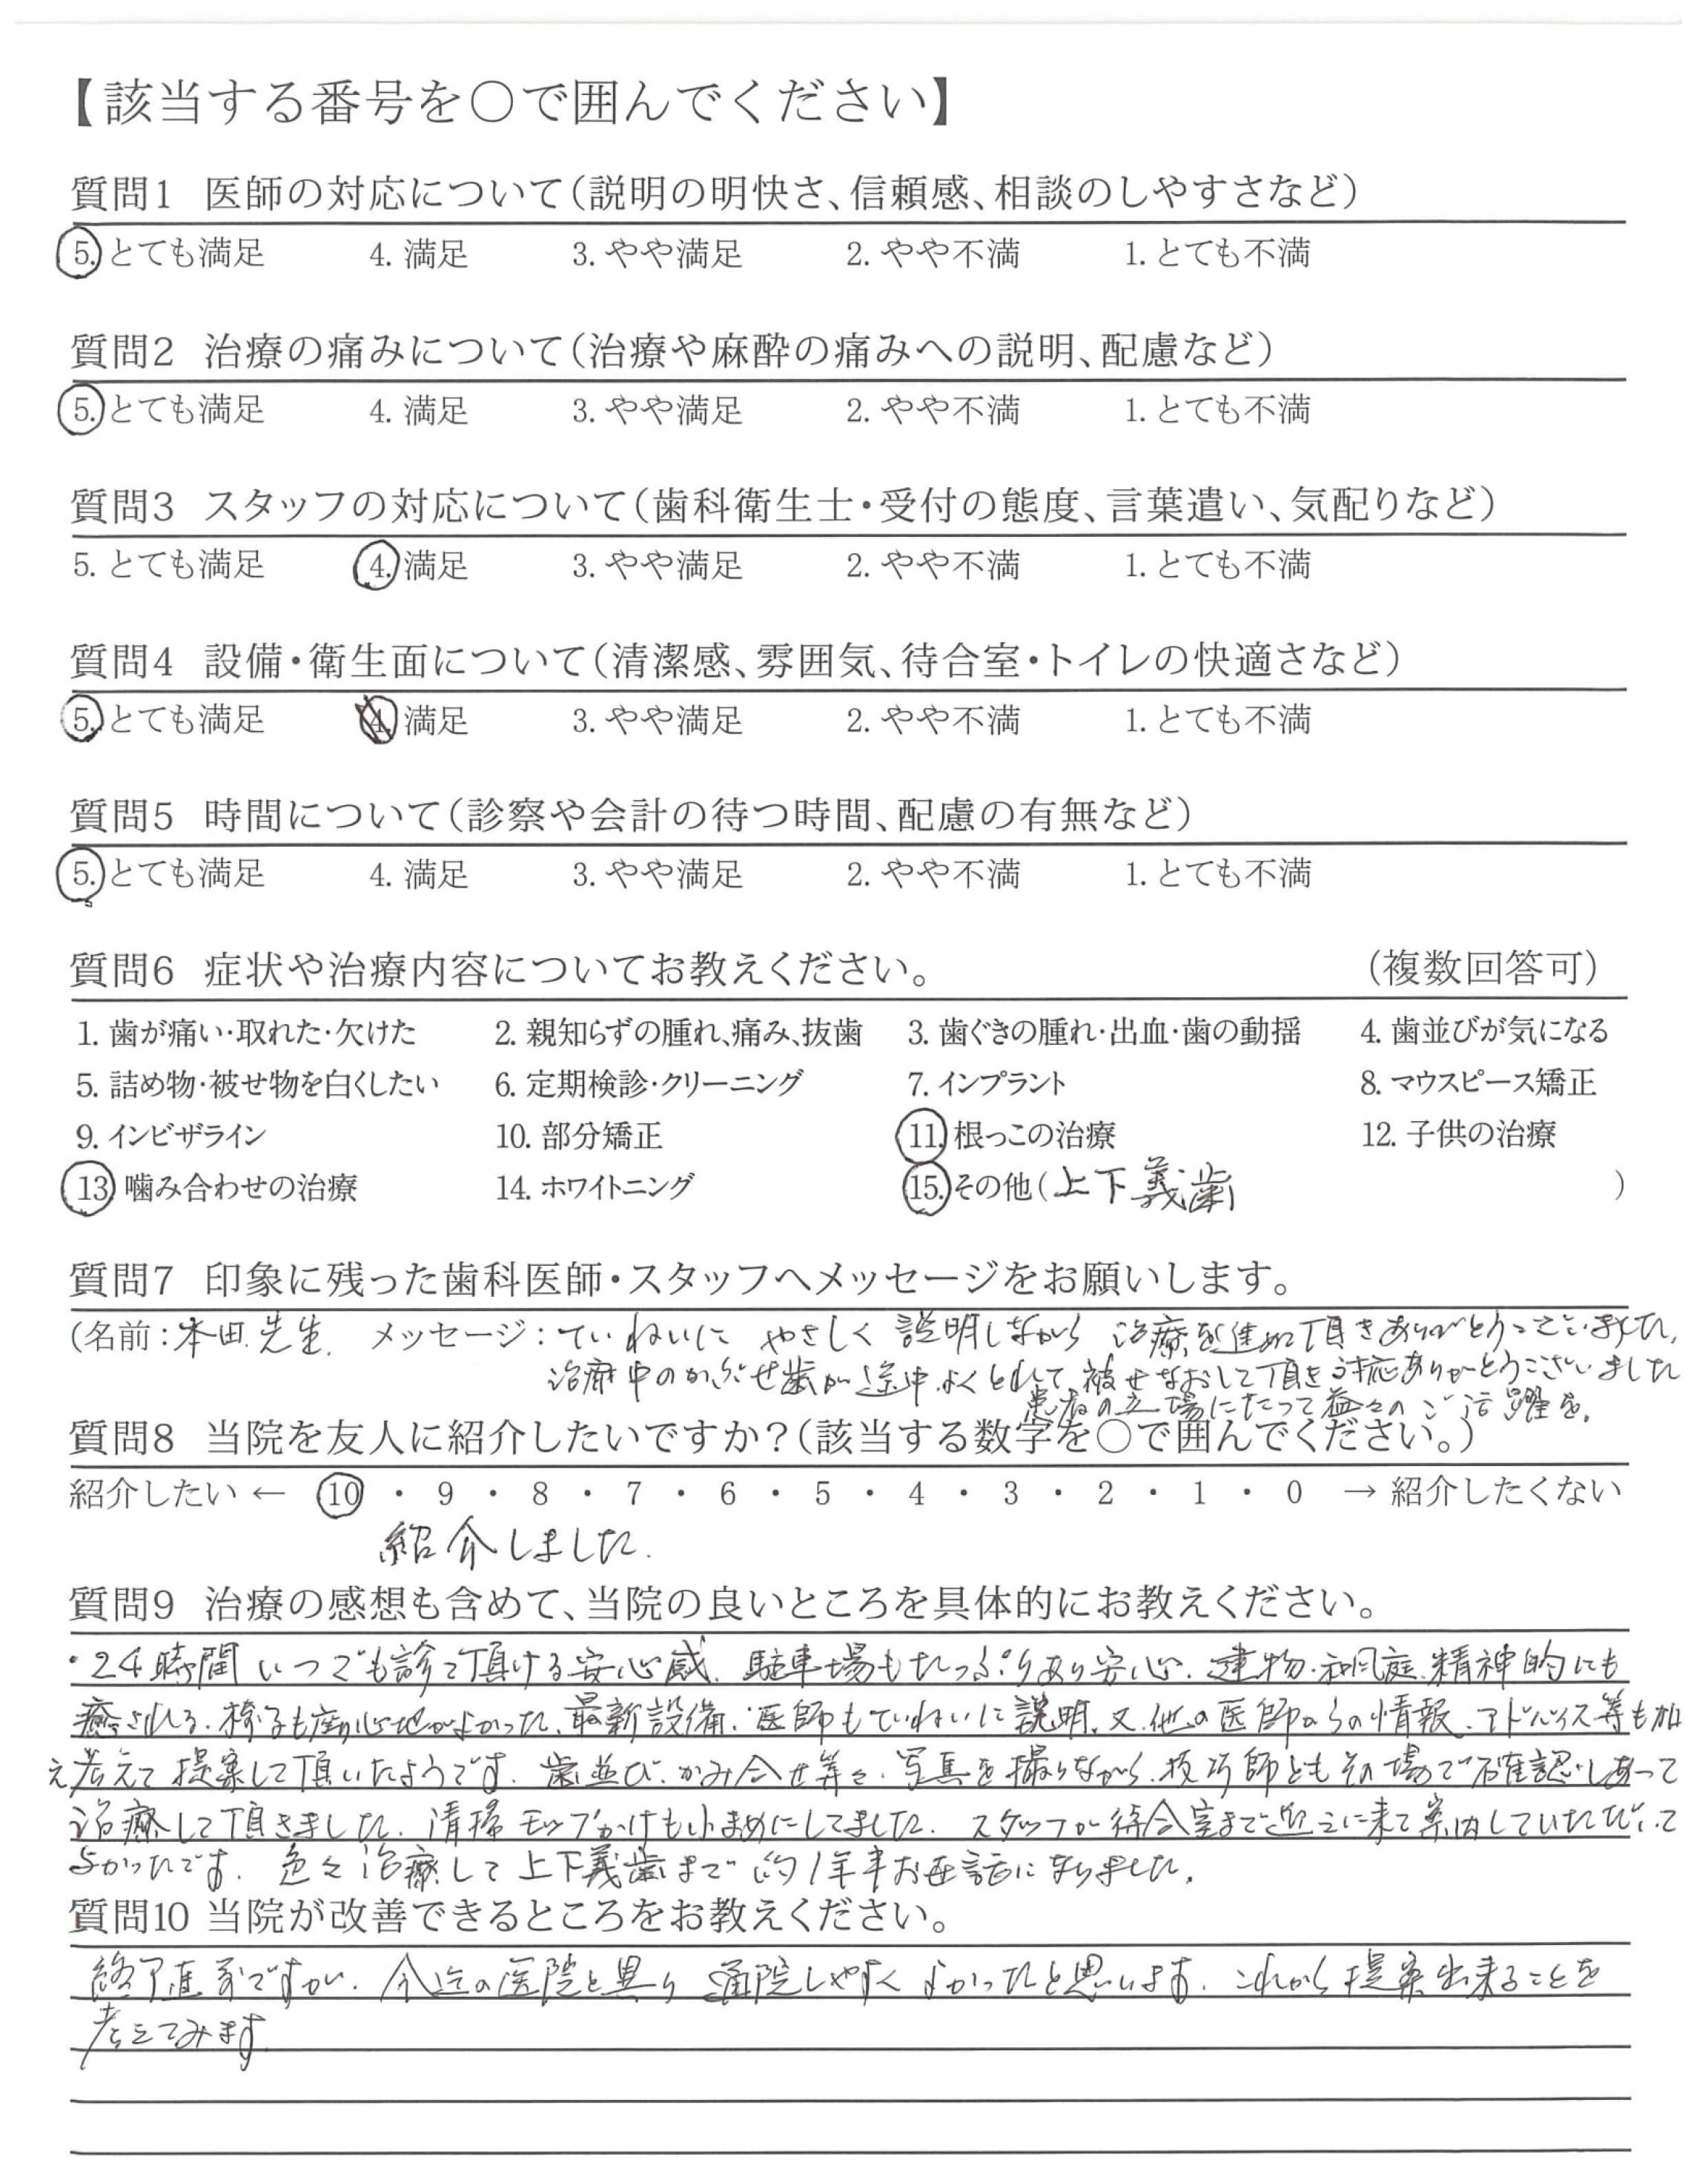 【該当する番号を○で囲んでください】
質問1 医師の対応について(説明の明快さ、信頼感、相談のしやすさなど)
5. とても満足 4. 満足 3. やや満足 2. やや不満 1. とても不満
質問2 治療の痛みについて(治療や麻酔の痛みへの説明、配慮など)
5. とても満足 4. 満足 3. やや満足 2. やや不満 1. とても不満
質問3 スタッフの対応について(歯科衛生士・受付の態度、言葉遣い、気配りなど)
5. とても満足 4. 満足 3. やや満足 2. やや不満 1. とても不満
質問4 設備・衛生面について(清潔感、雰囲気、待合室・トイレの快適さなど)
5. とても満足 4. 満足 3. やや満足 2. やや不満 1. とても不満
質問5 時間について(診察や会計の待つ時間、配慮の有無など)
5. とても満足 4. 満足 3. やや満足 2. やや不満 1. とても不満
質問6 症状や治療内容についてお教えください。 (複数回答可)
1. 歯が痛い・取れた・欠けた 2. 親知らずの腫れ、痛み、抜歯 3. 歯ぐきの腫れ・出血・歯の動揺 4. 歯並びが気になる
5. 詰め物・被せ物を白くしたい 6. 定期検診・クリーニング 7. インプラント 8. マウスピース矯正
9. インビザライン 10. 部分矯正 11. 根っこの治療 12. 子供の治療
13. 噛み合わせの治療 14. ホワイトニング 15. その他(上下義歯 )
質問7 印象に残った歯科医師・スタッフへメッセージをお願いします。
(名前:本田先生. メッセージ:ていねいに やさしく 説明しながら 治療を進めて頂きありがとうございました.
治療中のかぶせ歯が途中よくとれて、被せなおして頂き対応ありがとうございました
患者の立場にたって益々のご活躍を.
質問8 当院を友人に紹介したいですか?(該当する数字を○で囲んでください。)
紹介したい ← 10 ・ 9 ・ 8 ・ 7 ・ 6 ・ 5 ・ 4 ・ 3 ・ 2 ・ 1 ・ 0 → 紹介したくない
紹介しました.
質問9 治療の感想も含めて、当院の良いところを具体的にお教えください。
・24時間いつでも診て頂ける安心感. 駐車場もたっぷりあり安心. 建物・和風庭.精神的にも
癒される. 椅子も座り心地がよかった. 最新設備. 医師もていねいに説明. 又.他の医師からの情報.アドバイス等も加
え考えて提案して頂いたようです. 歯並び.かみ合せ等々.写真を撮りながら.技巧師ともその場で確認しあって
治療して頂きました. 清掃モップかけも小まめにしてました. スタッフが待合室まで迎えに来て案内していただいて
よかったです. 色々治療して上下義歯まで約1年半お世話になりました.
質問10 当院が改善できるところをお教えください。
終了直前ですが. 今迄の医院と異り 通院しやすく よかったと思います. これから提案出来ることを
考えてみます.